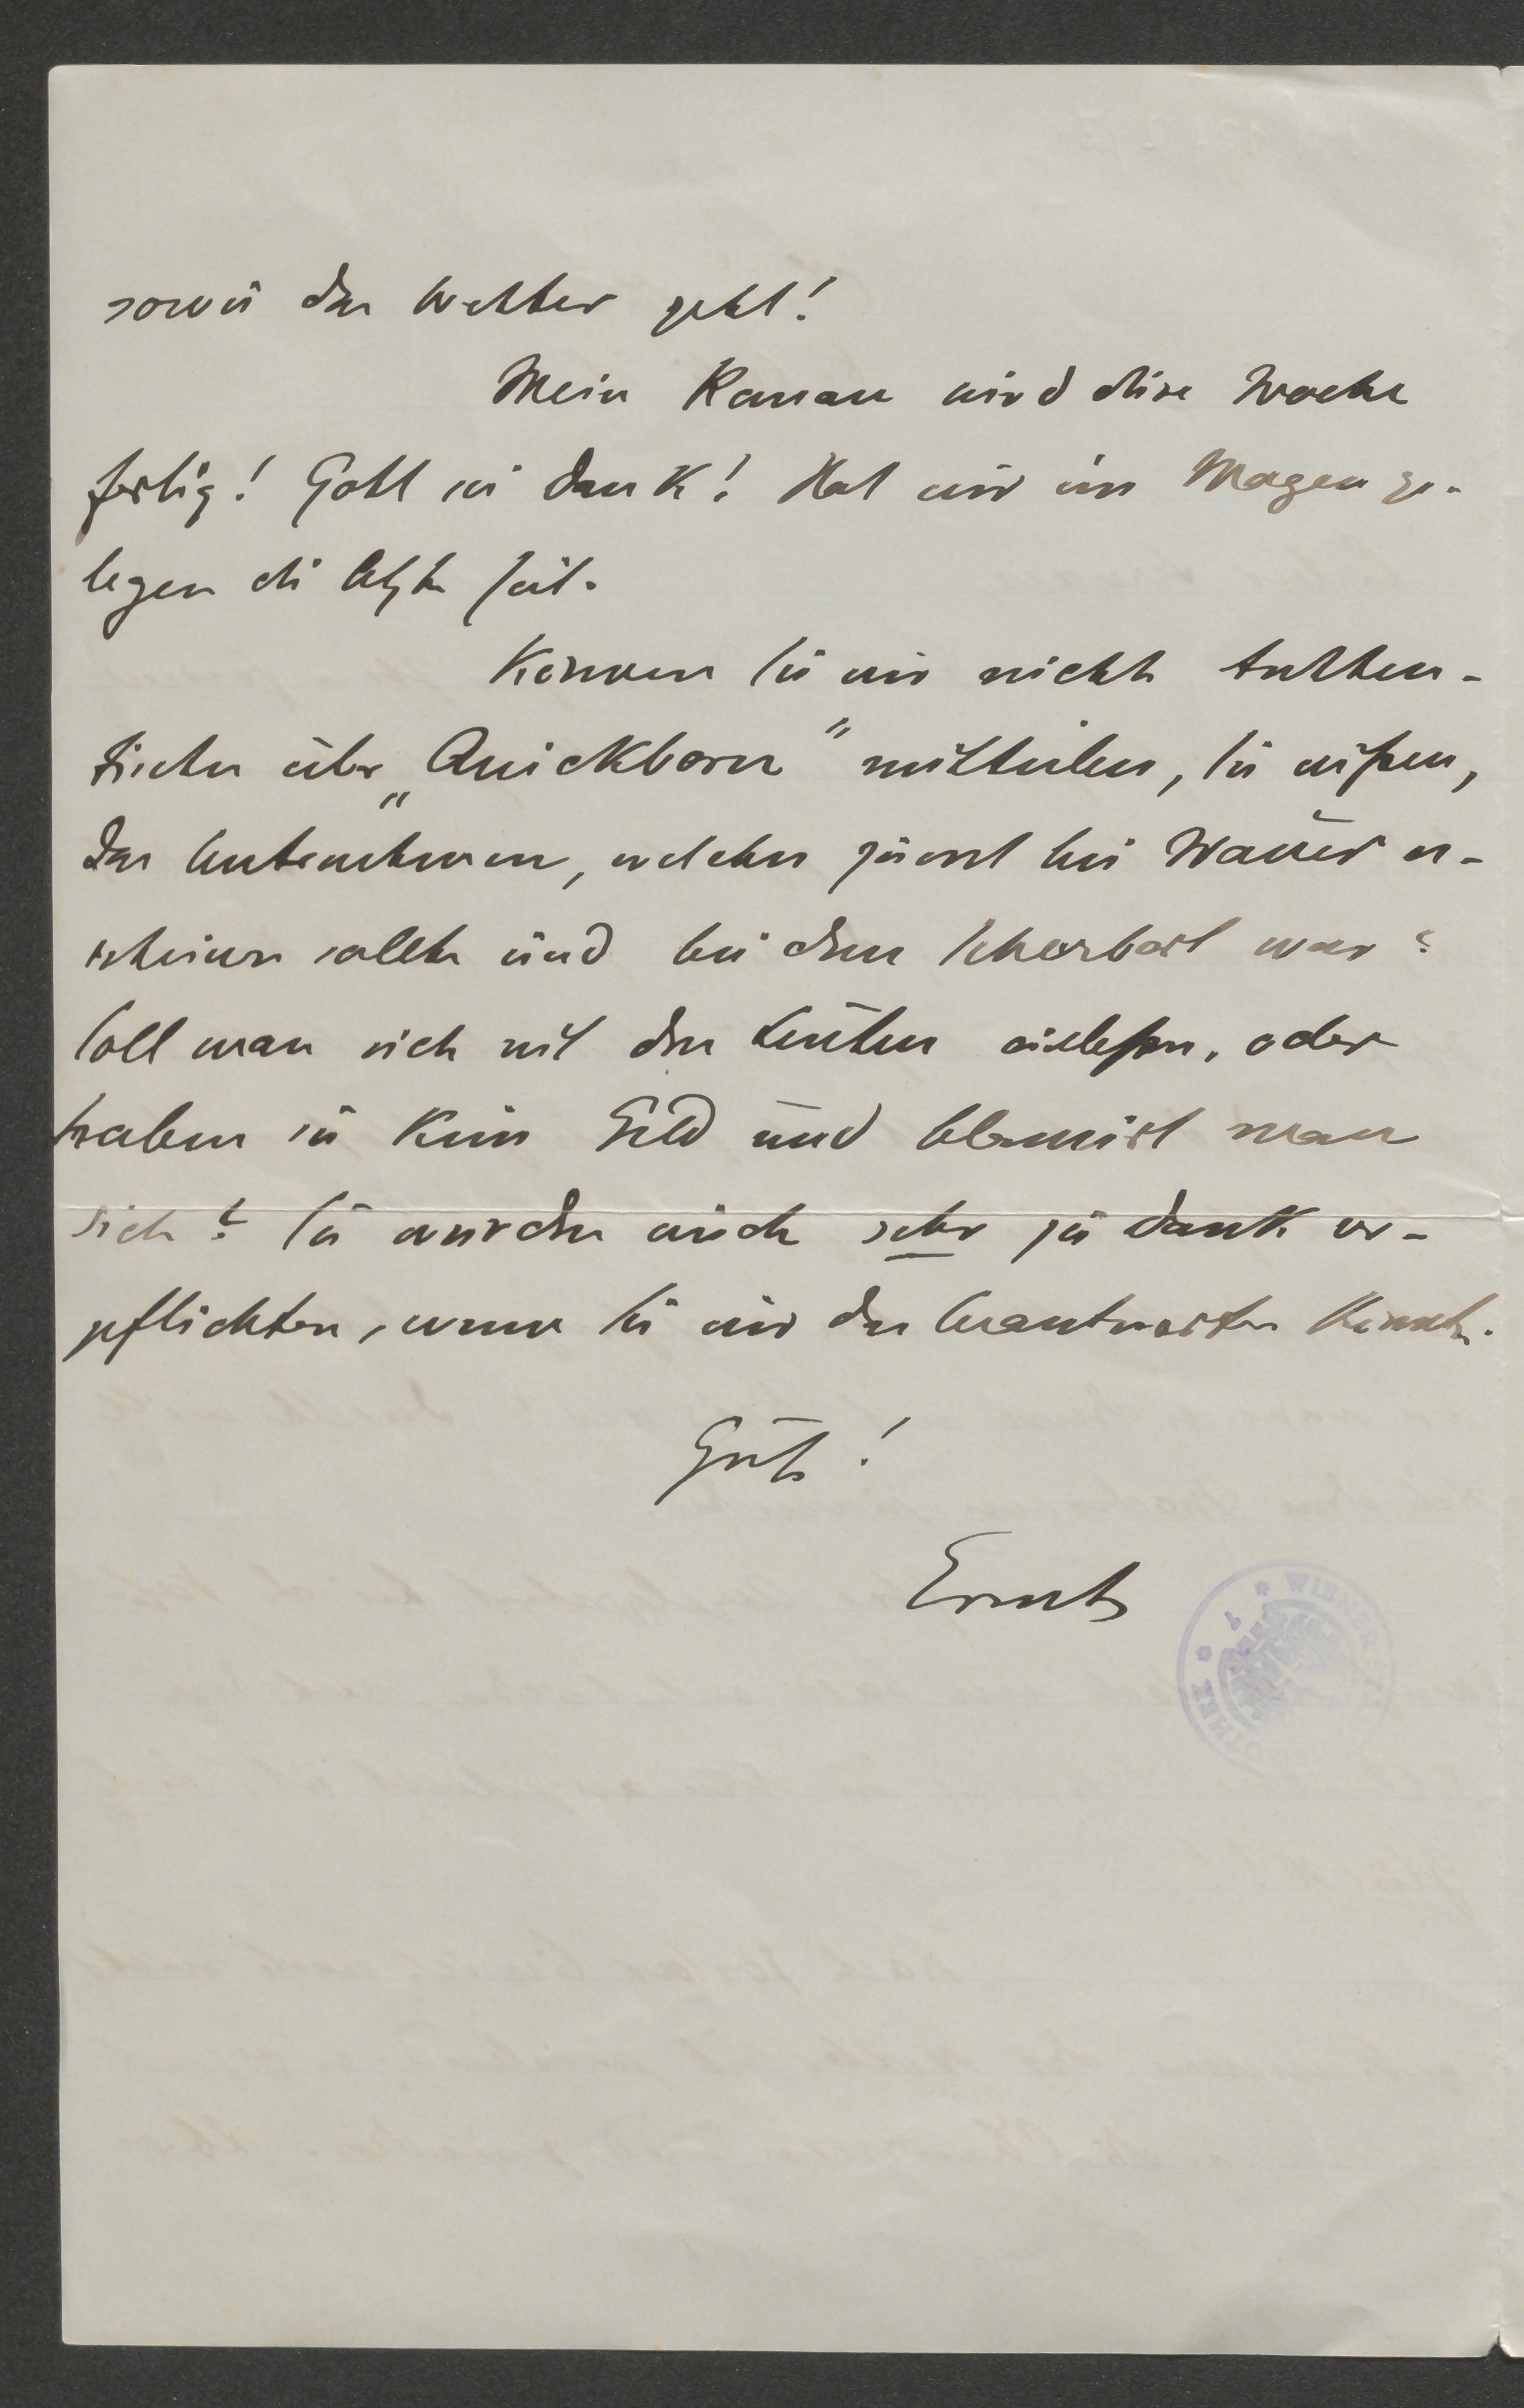 sowie das Wetter geht!
Mein Roman wird diese Woche
fertig! Gott sei Dank! Hat mir im Magen ge-
legen die letzte Zeit.
Können Sie mir nicht Authen-
tisches über „Quickborn" mittheilen, Sie wißen,
das Unternehmen, welches zuerst bei Wauer er-
scheinen sollte und bei dem Scheerbart war?
Soll man sich mit den Leuten einlaßen, oder
haben sie kein Geld und blamirt man
sich? Sie würden mich sehr zu Dank ver-
pflichten, wenn Sie mir das beantworten könnten.
Gruß!
Ernst
WIENER
OTHEK